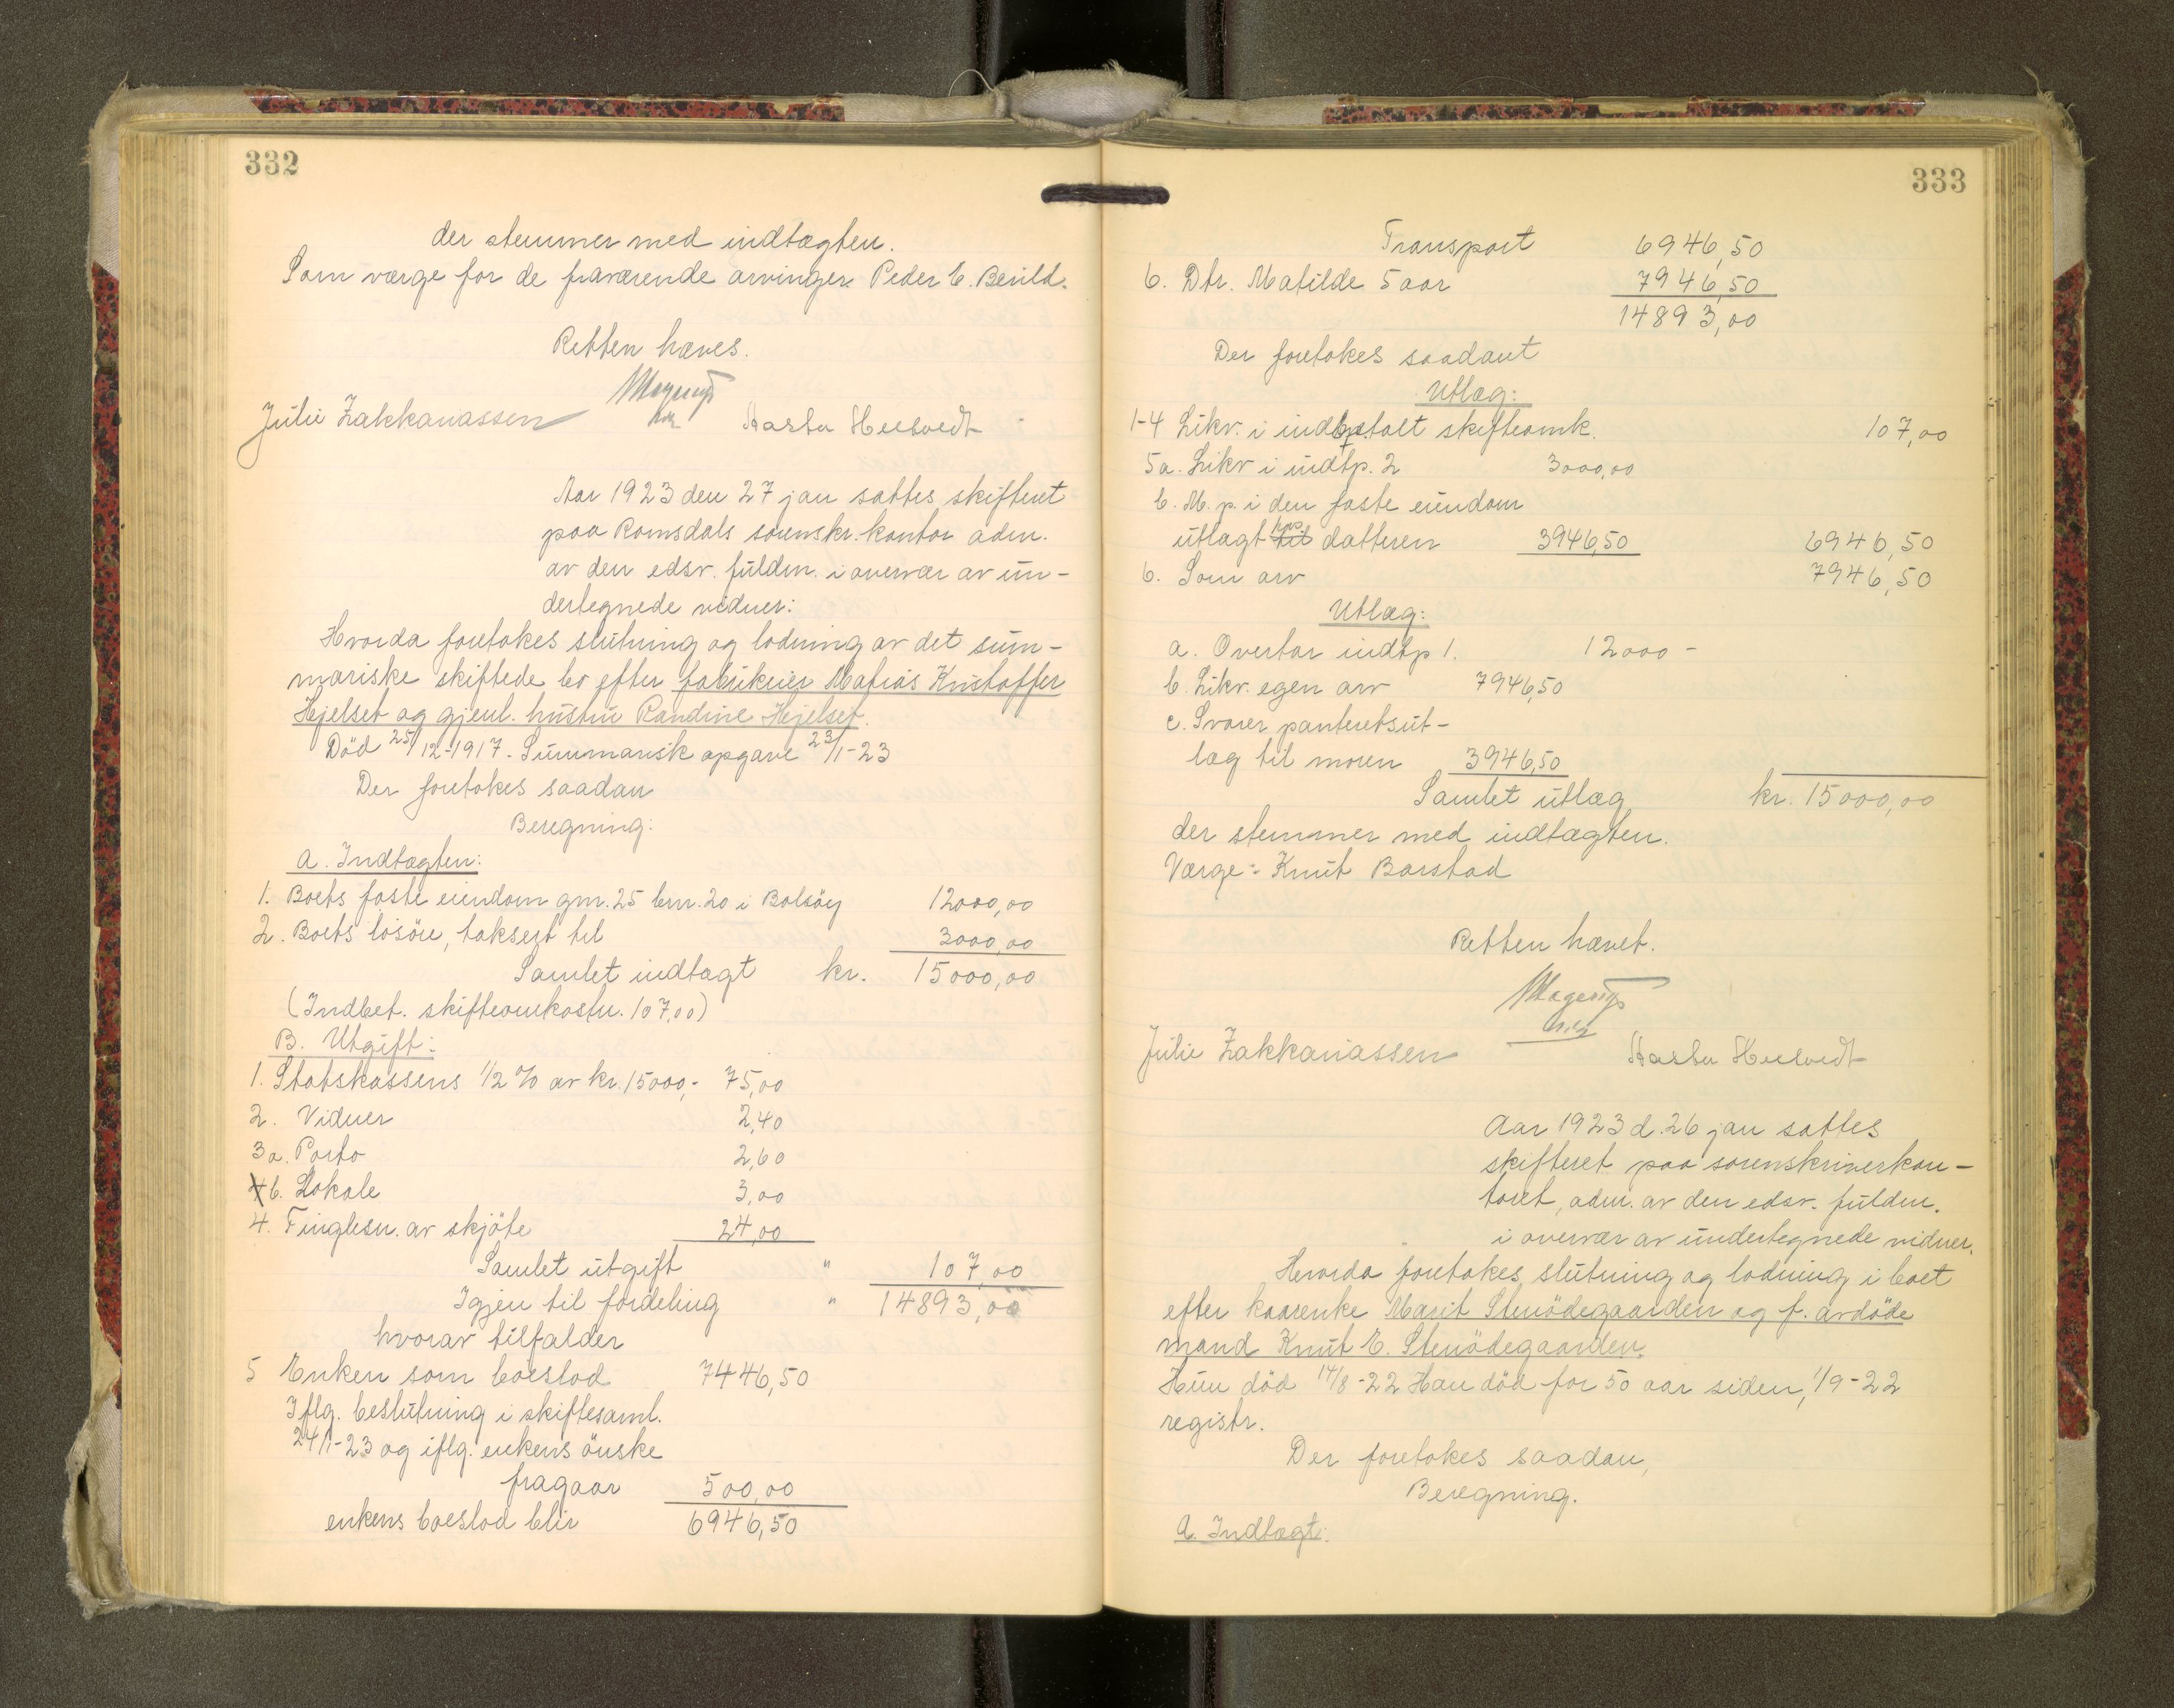 332
der stemmer med indtægten.
Som værge for de fraværende arvinger Peder C. Berild.
Retten hæves.
Julie Zakkariassen
Aar 1923 den 27 jan sattes skifteret
paa Romsdals sorenskr. kontor adm.
av den edsv. fuldm. i overvær av un-
dertegnede vidner:
Hvorda foretokes slutning og lodning av det sum-
mariske skiftede bo efter fabrikeier Matias Kristoffer
Hjelset og gjenl. hustru Randine Hjelset.
Död 25/12-1917. Summarisk opgave 23/1-23
Der foretokes saadan
Beregning:
a. Indtægten:
1. Boets faste eiendom gnr. 25 bnr. 20 i Bolsöy 12000,00
2. Boets lösöre, taksert til 3000,00
Samlet indtægt kr. 15000,00
(Indbet. skifteomkostn. 107,00)
B. Utgift:
1. Statskassens 1/2 % av kr. 15000,- 75,00
2. Vidner 2,40
3a. Porto 2,60
b. Lokale 3,00
4. Tinglesn. av skjöte 24,00
Samlet utgift " 107,00
Igjen til fordeling " 14893,00
hvorav tilfalder
5 Enken som boeslod 7446,50
Iflg. beslutning i skiftesaml.
24/1-23 og iflg. enkens önske
fragaar 500,00
enkens boeslod blir 6946,50
333
Transport 6946,50
6. Dtr. Matilde 5 aar 7946,50
14893,00
Der foretokes saadant
Utlæg:
1-4 Likv. i indbetalt skifteomk. 107,00
5a. Likv i indtp. 2 3000,00
b. M. p. i den faste eiendom
utlagt hos datteren 3946,50 6946,50
6. Som arv 7946,50
Utlæg:
a. Overtar indtp 1. 12000 -
b. Likv. egen arv 7946,50
c. Svarer panteretsut-
læg til moren 3946,50
Samlet utlæg kr. 15000,00
der stemmer med indtægten.
Værge: Knut Barstad
Retten hævet.
Julie Zakkariassen
Aar 1923 d. 26 jan sattes
skifteret paa sorenskriverkon-
toret, adm. av den edsv. fuldm.
i overvær av undertegnede vidner.
Hvorda foretokes slutning og lodning i boet
efter kaarenke Marit Stenödegaarden og f. avdöde
mand Knut E. Stenödegaarden.
Hun död 14/8-22 Han död for 50 aar siden, 1/9-22
registr.
Der foretokes saadan,
Beregning.
a. Indtægt: